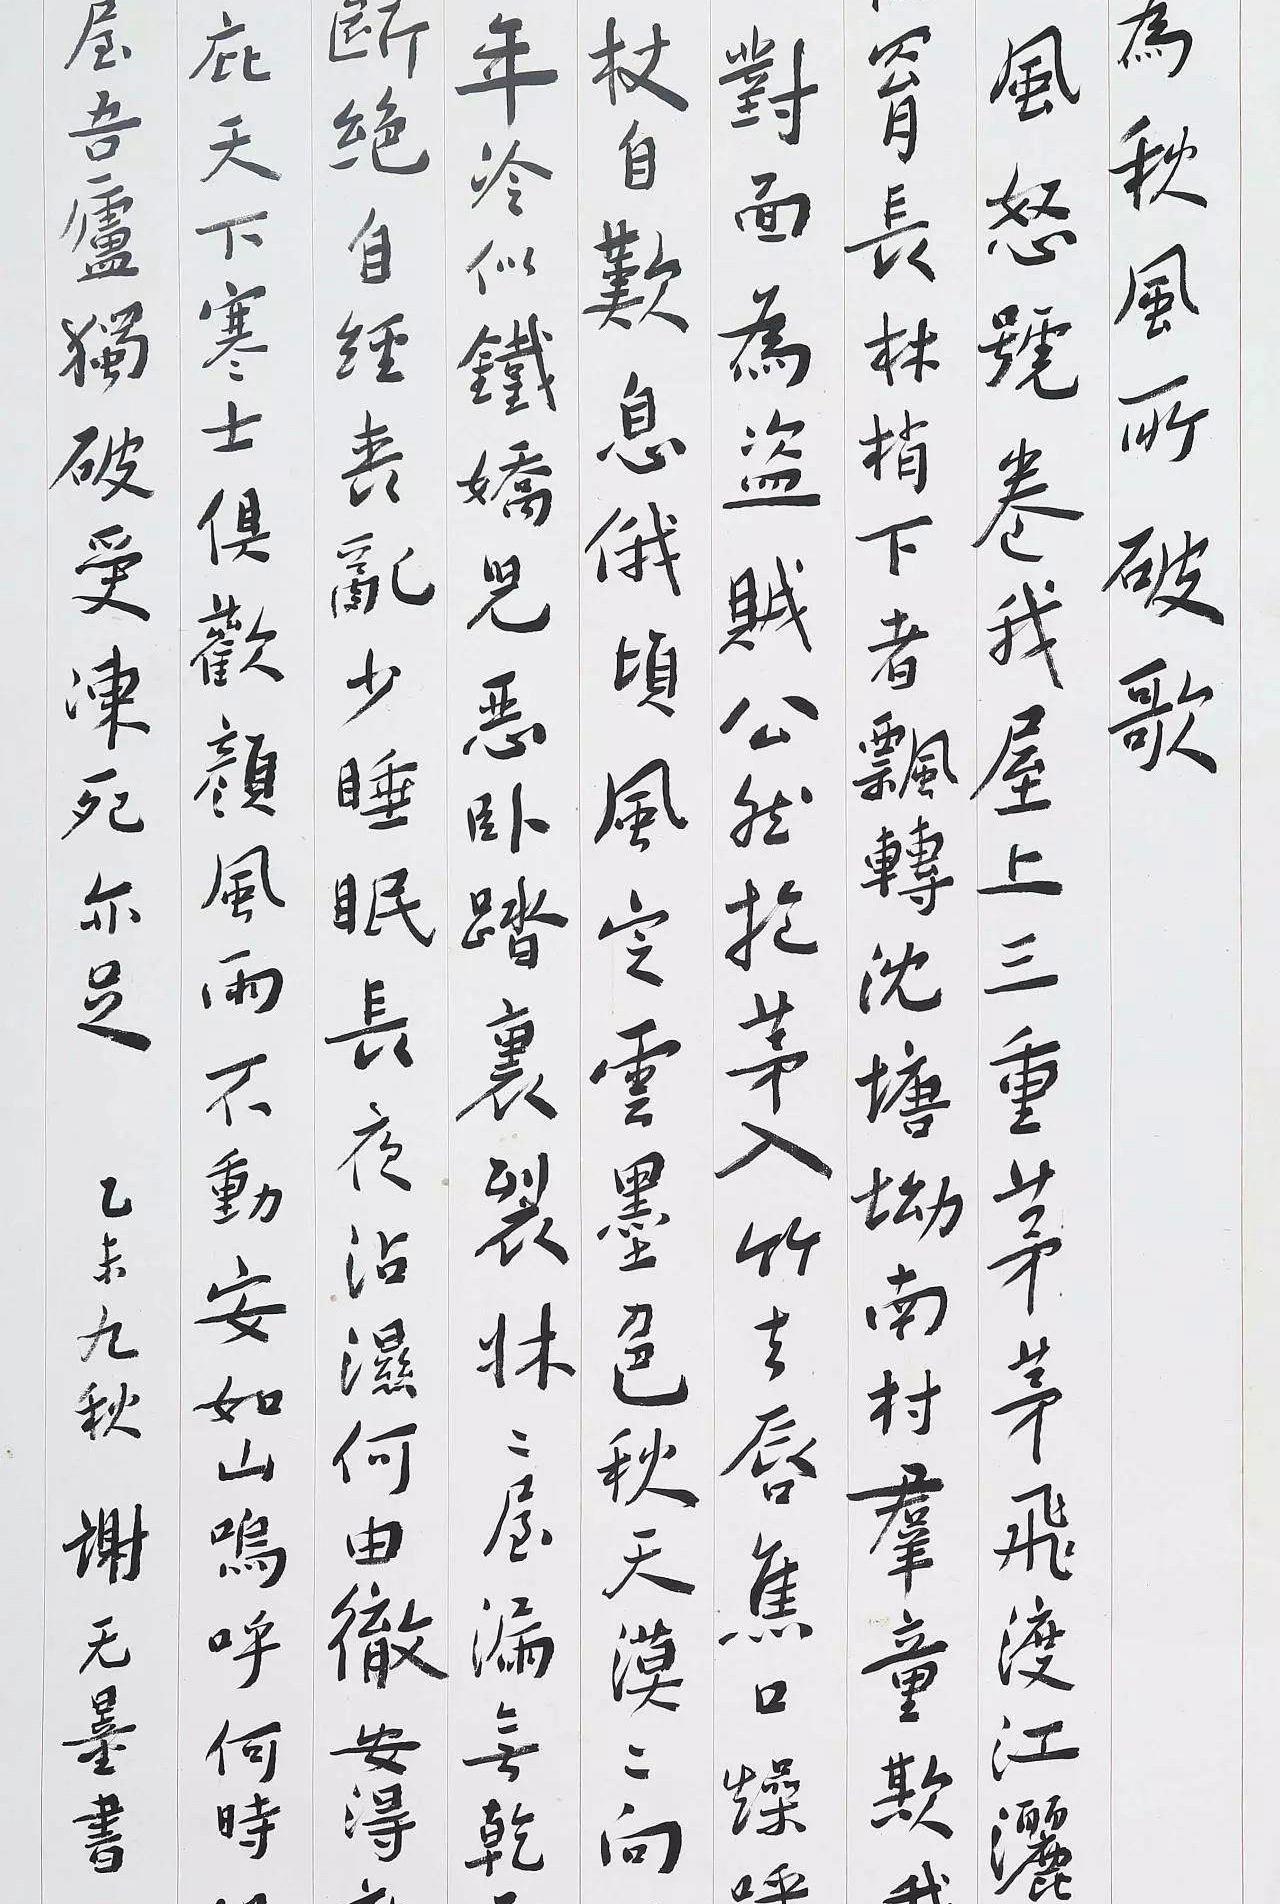 為秋風所破歌
風怒號卷我屋上三重茅茅飛渡江灑
罥長林梢下者飄轉沈塘坳南村羣童欺我
對面為盜賊公然抱茅入竹去唇焦口燥呼
杖自歎息俄頃風定雲墨色秋天漠〻向
年冷似鐵嬌兒惡卧踏裏裂牀〻屋漏無乾
斷絕自經喪亂少睡眠長夜沾濕何由徹安得
庇天下寒士俱歡顏風雨不動安如山嗚呼何時
屋吾廬獨破受凍死亦足 乙未九秋 謝无墨書